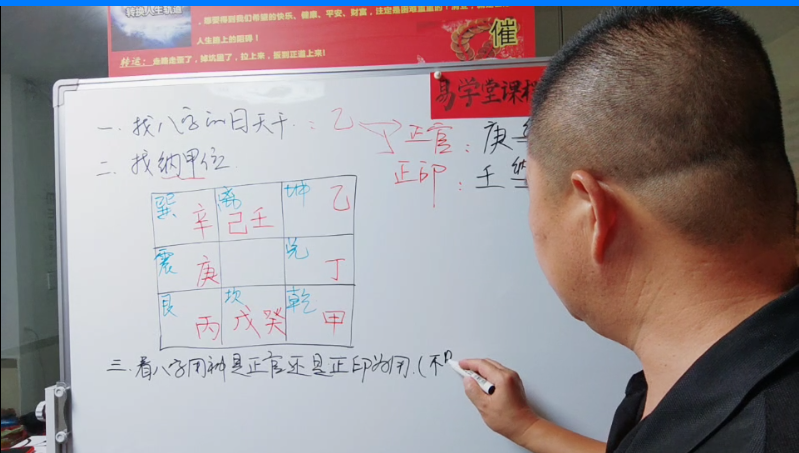 转换人生轨道
，都要得到我们希望的快乐、健康、平安、财富，注定是困难重重的！
人生路上的阻碍！
转运：走路走歪了，掉坑里了，拉上来，扳到正道上来！
催
易学堂课程
一.找八字的日天干.：乙 正官：庚
二.找纳甲位. 正印：壬
巽 辛 离 己壬 坤 乙
震 庚 兑 丁
艮 丙 坎 戊癸 乾 甲
三.看八字用神是正官还是正印为用.(不